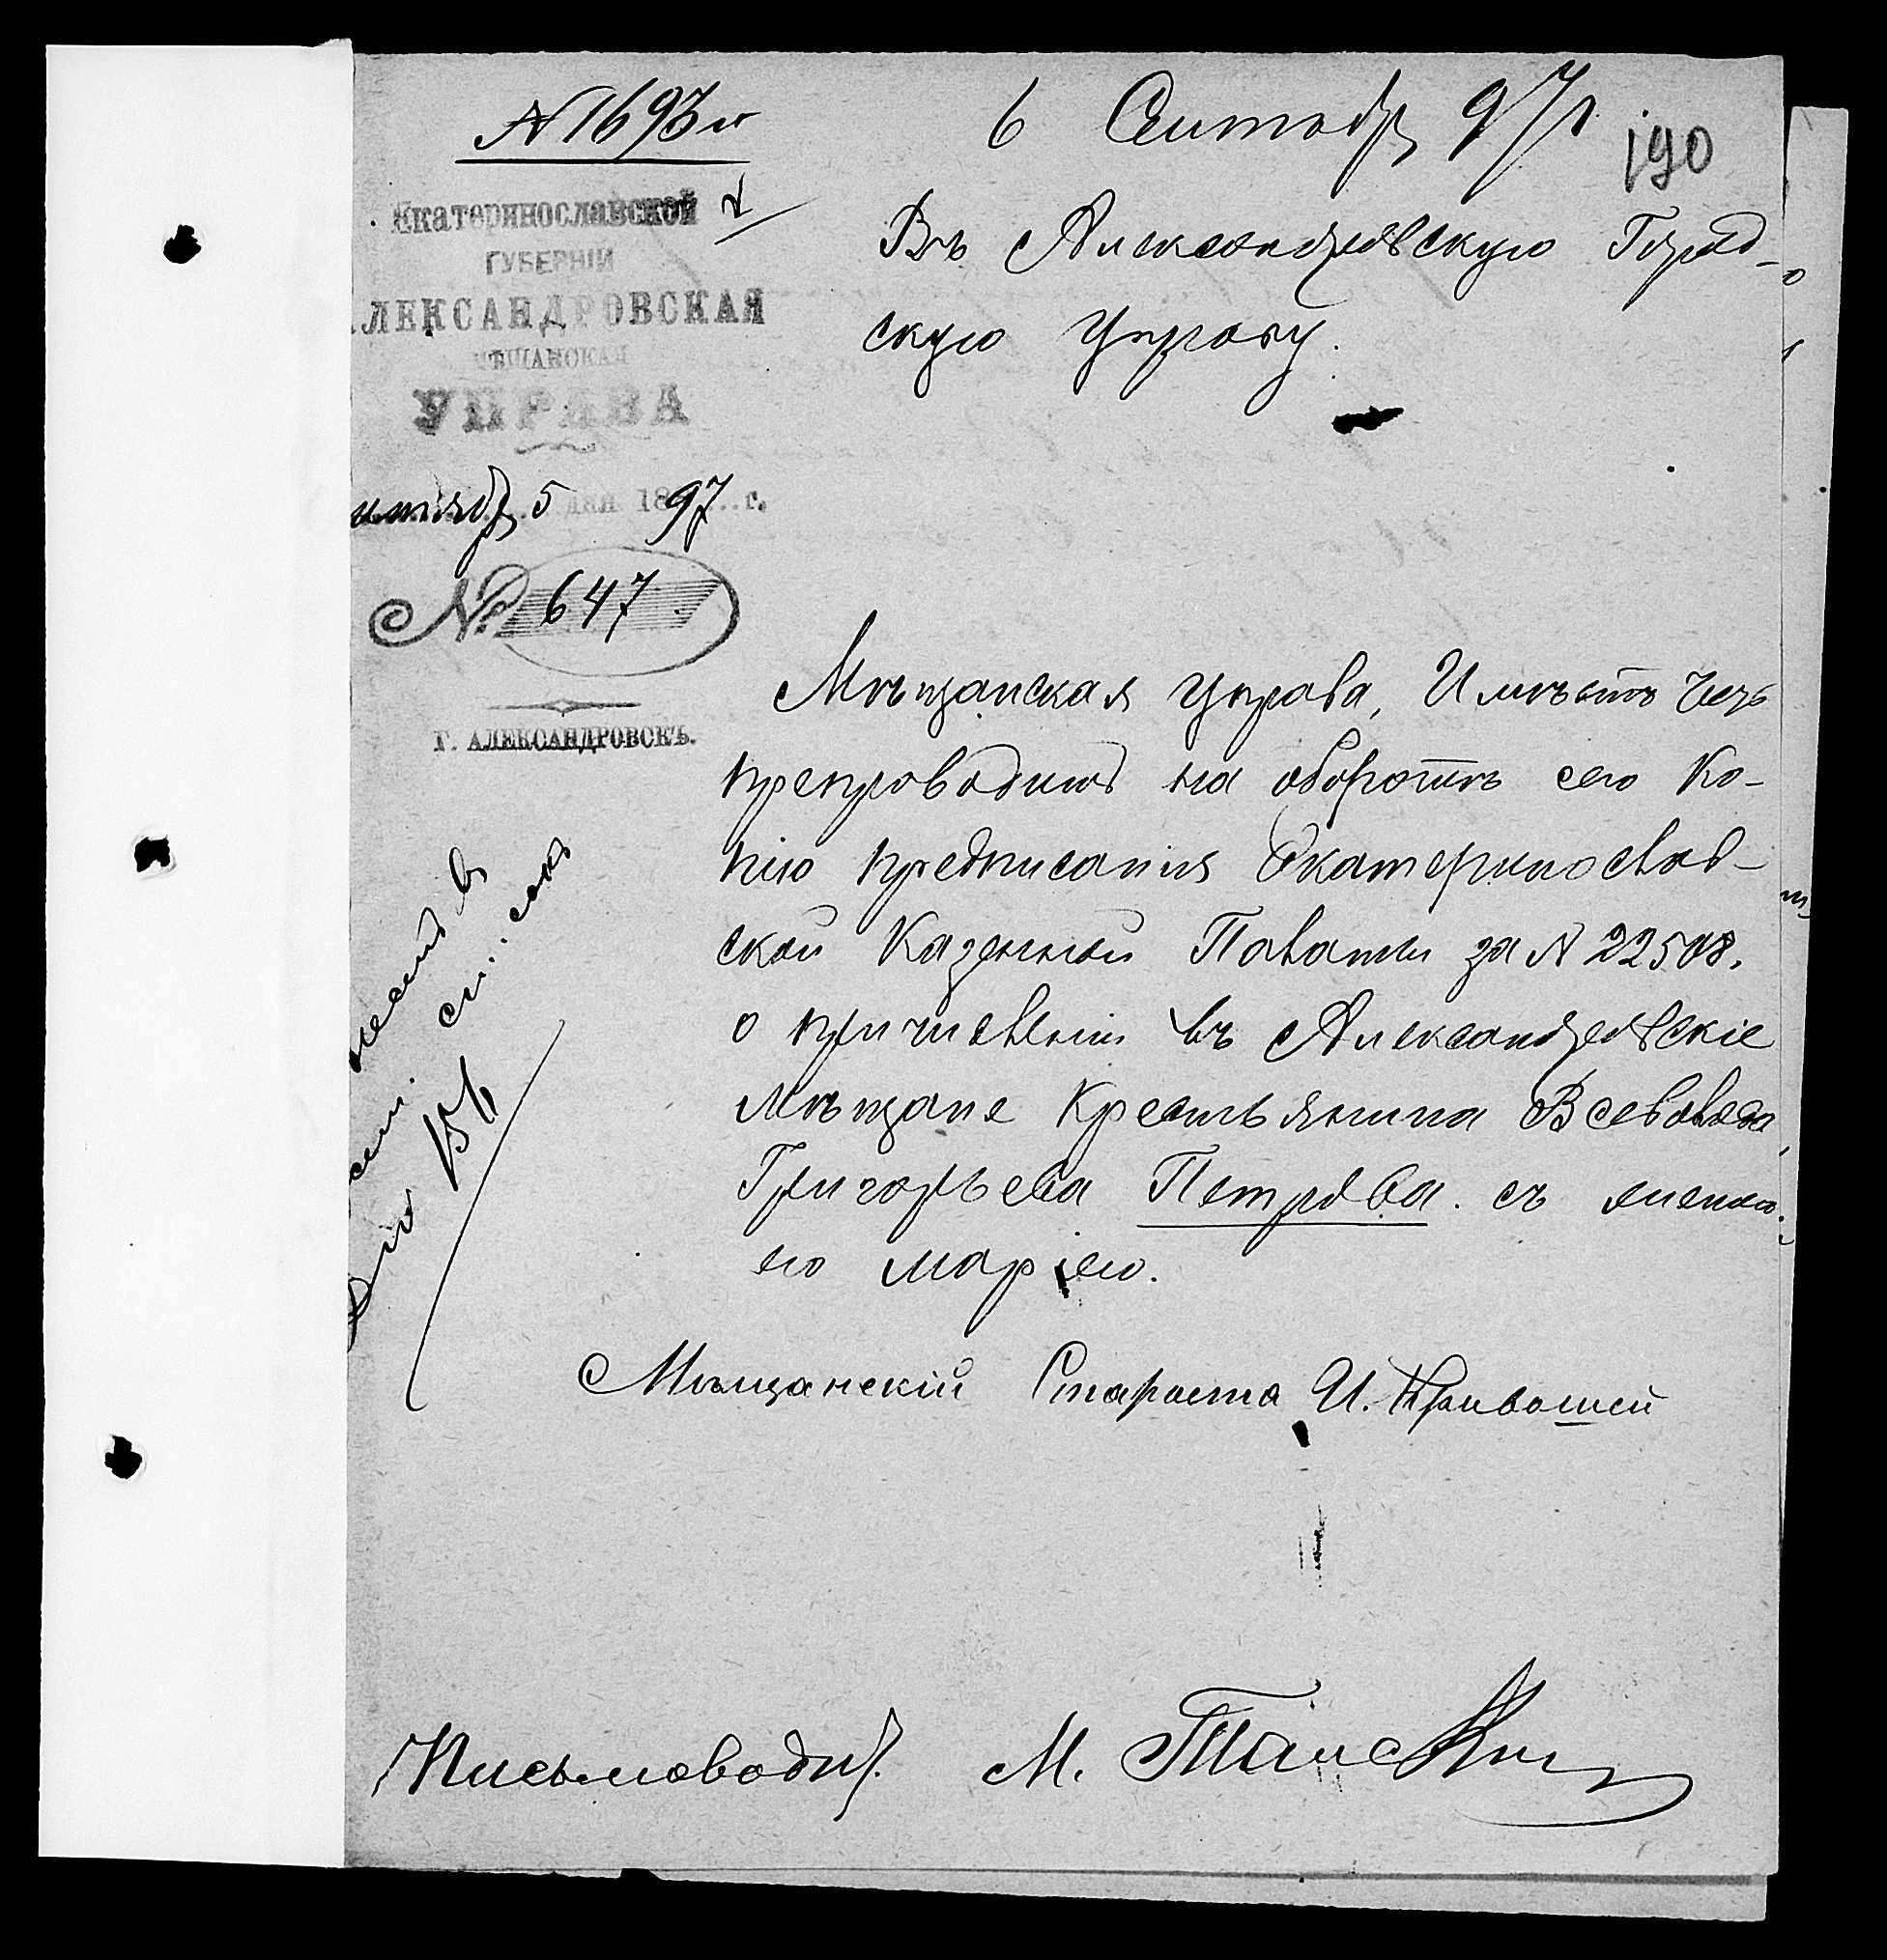 № 1693
6 Сентябр 97 г
190
Екатеринославской
ГУБЕРНІИ
АЛЕКСАНДРОВСКАЯ
МѢЩАНСКАЯ
УПРАВА
нтябр 5 дня 1897 г.
№ 647
Г. АЛЕКСАНДРОВСКЪ.
Въ Александровскую Город-
скую Управу.
Мѣщанская Управа, Имѣетъ честь
препроводить на оборотѣ сего Ко-
пію предписанія Екатеринослав-
ской Казенной Палаты за № 22508.
о причисленіи въ Александровскіе
Мѣщане Крестьянина Всеволода
Григорьева Петрова. съ женою
его Маріею.
Мѣщанскій Староста И. Кривошей
Письмоводит. М.